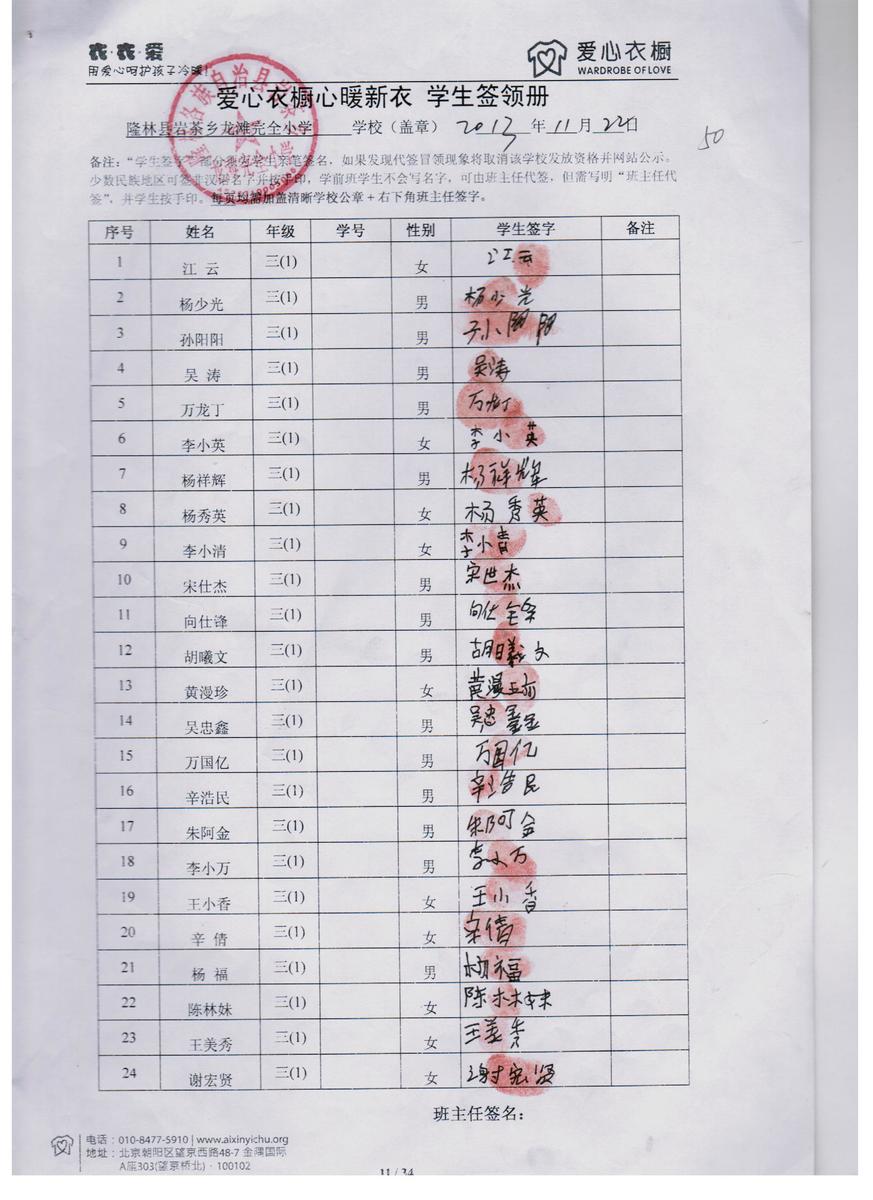 衣·衣·爱
用爱心呵护孩子冷暖!
爱心衣橱
WARDROBE OF LOVE
爱心衣橱心暖新衣 学生签领册
隆林县岩茶乡龙滩完全小学 学校（盖章） 2013 年 11 月 22日
50
备注：“学生签字”部分须为学生亲笔签名，如果发现代签冒领现象将取消该学校发放资格并网站公示。
少数民族地区可签非汉语名字并按手印，学前班学生不会写名字，可由班主任代签，但需写明“班主任代
签”，并学生按手印。每页均需加盖清晰学校公章+右下角班主任签字。
序号 姓名 年级 学号 性别 学生签字 备注
1 江 云 三(1) 女 江云
2 杨少光 三(1) 男 杨少光
3 孙阳阳 三(1) 男 孙小阳阳
4 吴 涛 三(1) 男 吴涛
5 万龙丁 三(1) 男 万龙丁
6 李小英 三(1) 女 李小英
7 杨祥辉 三(1) 男 杨祥辉
8 杨秀英 三(1) 女 杨秀英
9 李小清 三(1) 女 李小青
10 宋仕杰 三(1) 男 宋世杰
11 向仕锋 三(1) 男 向仕
12 胡曦文 三(1) 男 胡曦文
13 黄漫珍 三(1) 女 黄漫
14 吴忠鑫 三(1) 男 吴忠鑫
15 万国亿 三(1) 男 万国亿
16 辛浩民 三(1) 男 辛浩民
17 朱阿金 三(1) 男 朱阿金
18 李小万 三(1) 男 李小万
19 王小香 三(1) 女 王小香
20 辛 倩 三(1) 女 倩
21 杨 福 三(1) 男 杨福
22 陈林妹 三(1) 女 陈林妹
23 王美秀 三(1) 女 王美秀
24 谢宏贤 三(1) 女 谢宏贤
班主任签名：
电话：010-8477-5910 | www.aixinyichu.org
地址：北京朝阳区望京西路48-7 金隅国际
A座303(望京桥北)·100102
11 / 34